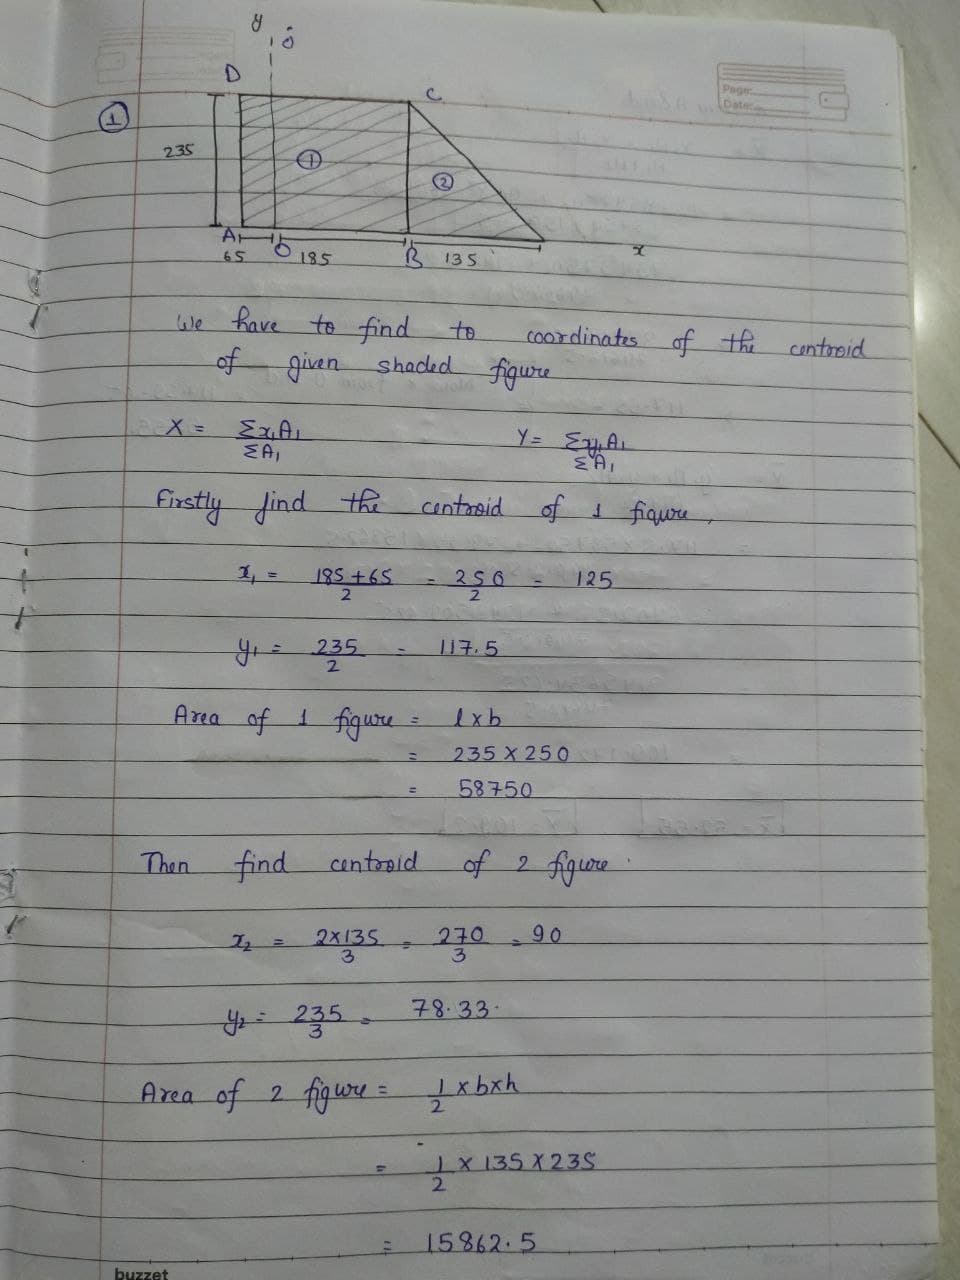 y
O
D
C
Page:
Date:
①
235
①
②
A
O
B
x
65
185
135
We have to find to coordinates of the centroid
of given shaded figure
X = Σx₁A₁/ΣA₁ Y = Σy₁A₁/ΣA₁
Firstly find the centroid of 1 figure,
x₁ = 185+65/2 = 250/2 = 125
y₁ = 235/2 = 117.5
Area of 1 figure = l x b
= 235 x 250
= 58750
Then find centroid of 2 figure.
x₂ = 2x135/3 = 270/3 = 90
y₂ = 235/3 = 78.33.
Area of 2 figure = 1/2 x b x h
= 1/2 x 135 x 235
= 15862.5
buzzet